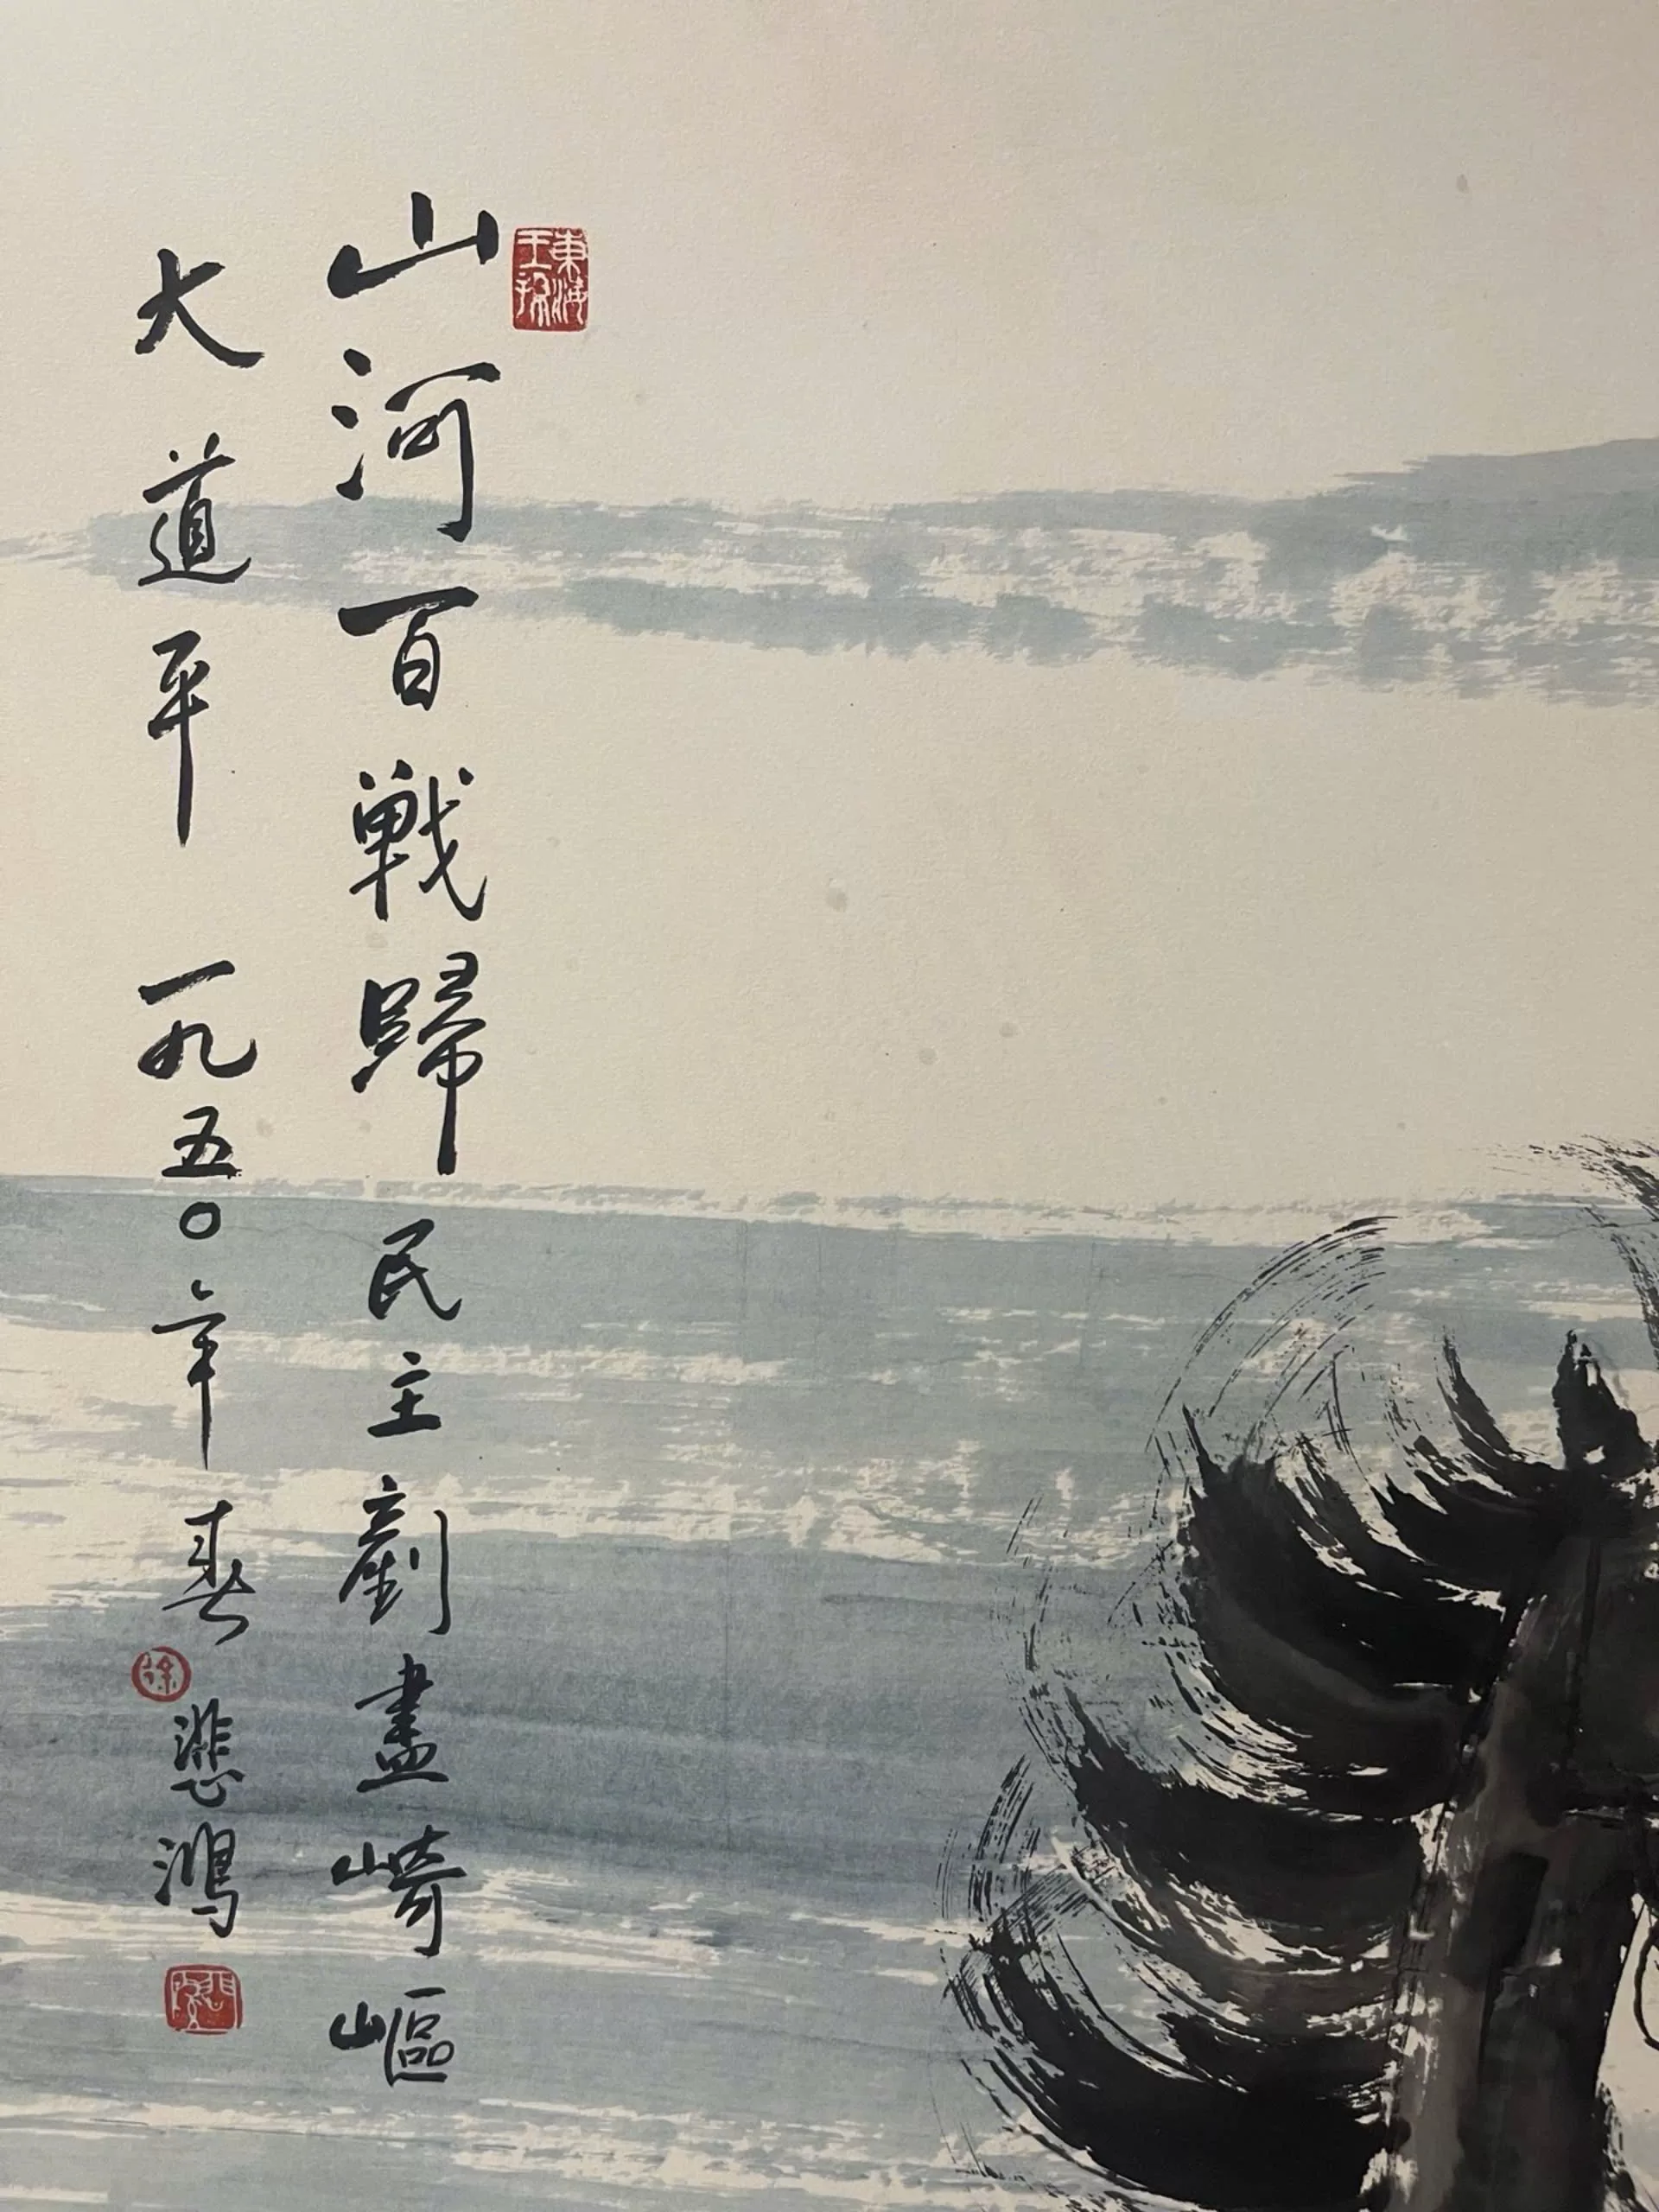 東海王孫
山河百戰歸民主剷盡崎嶇
大道平 一九五〇年春 悲鴻
徐